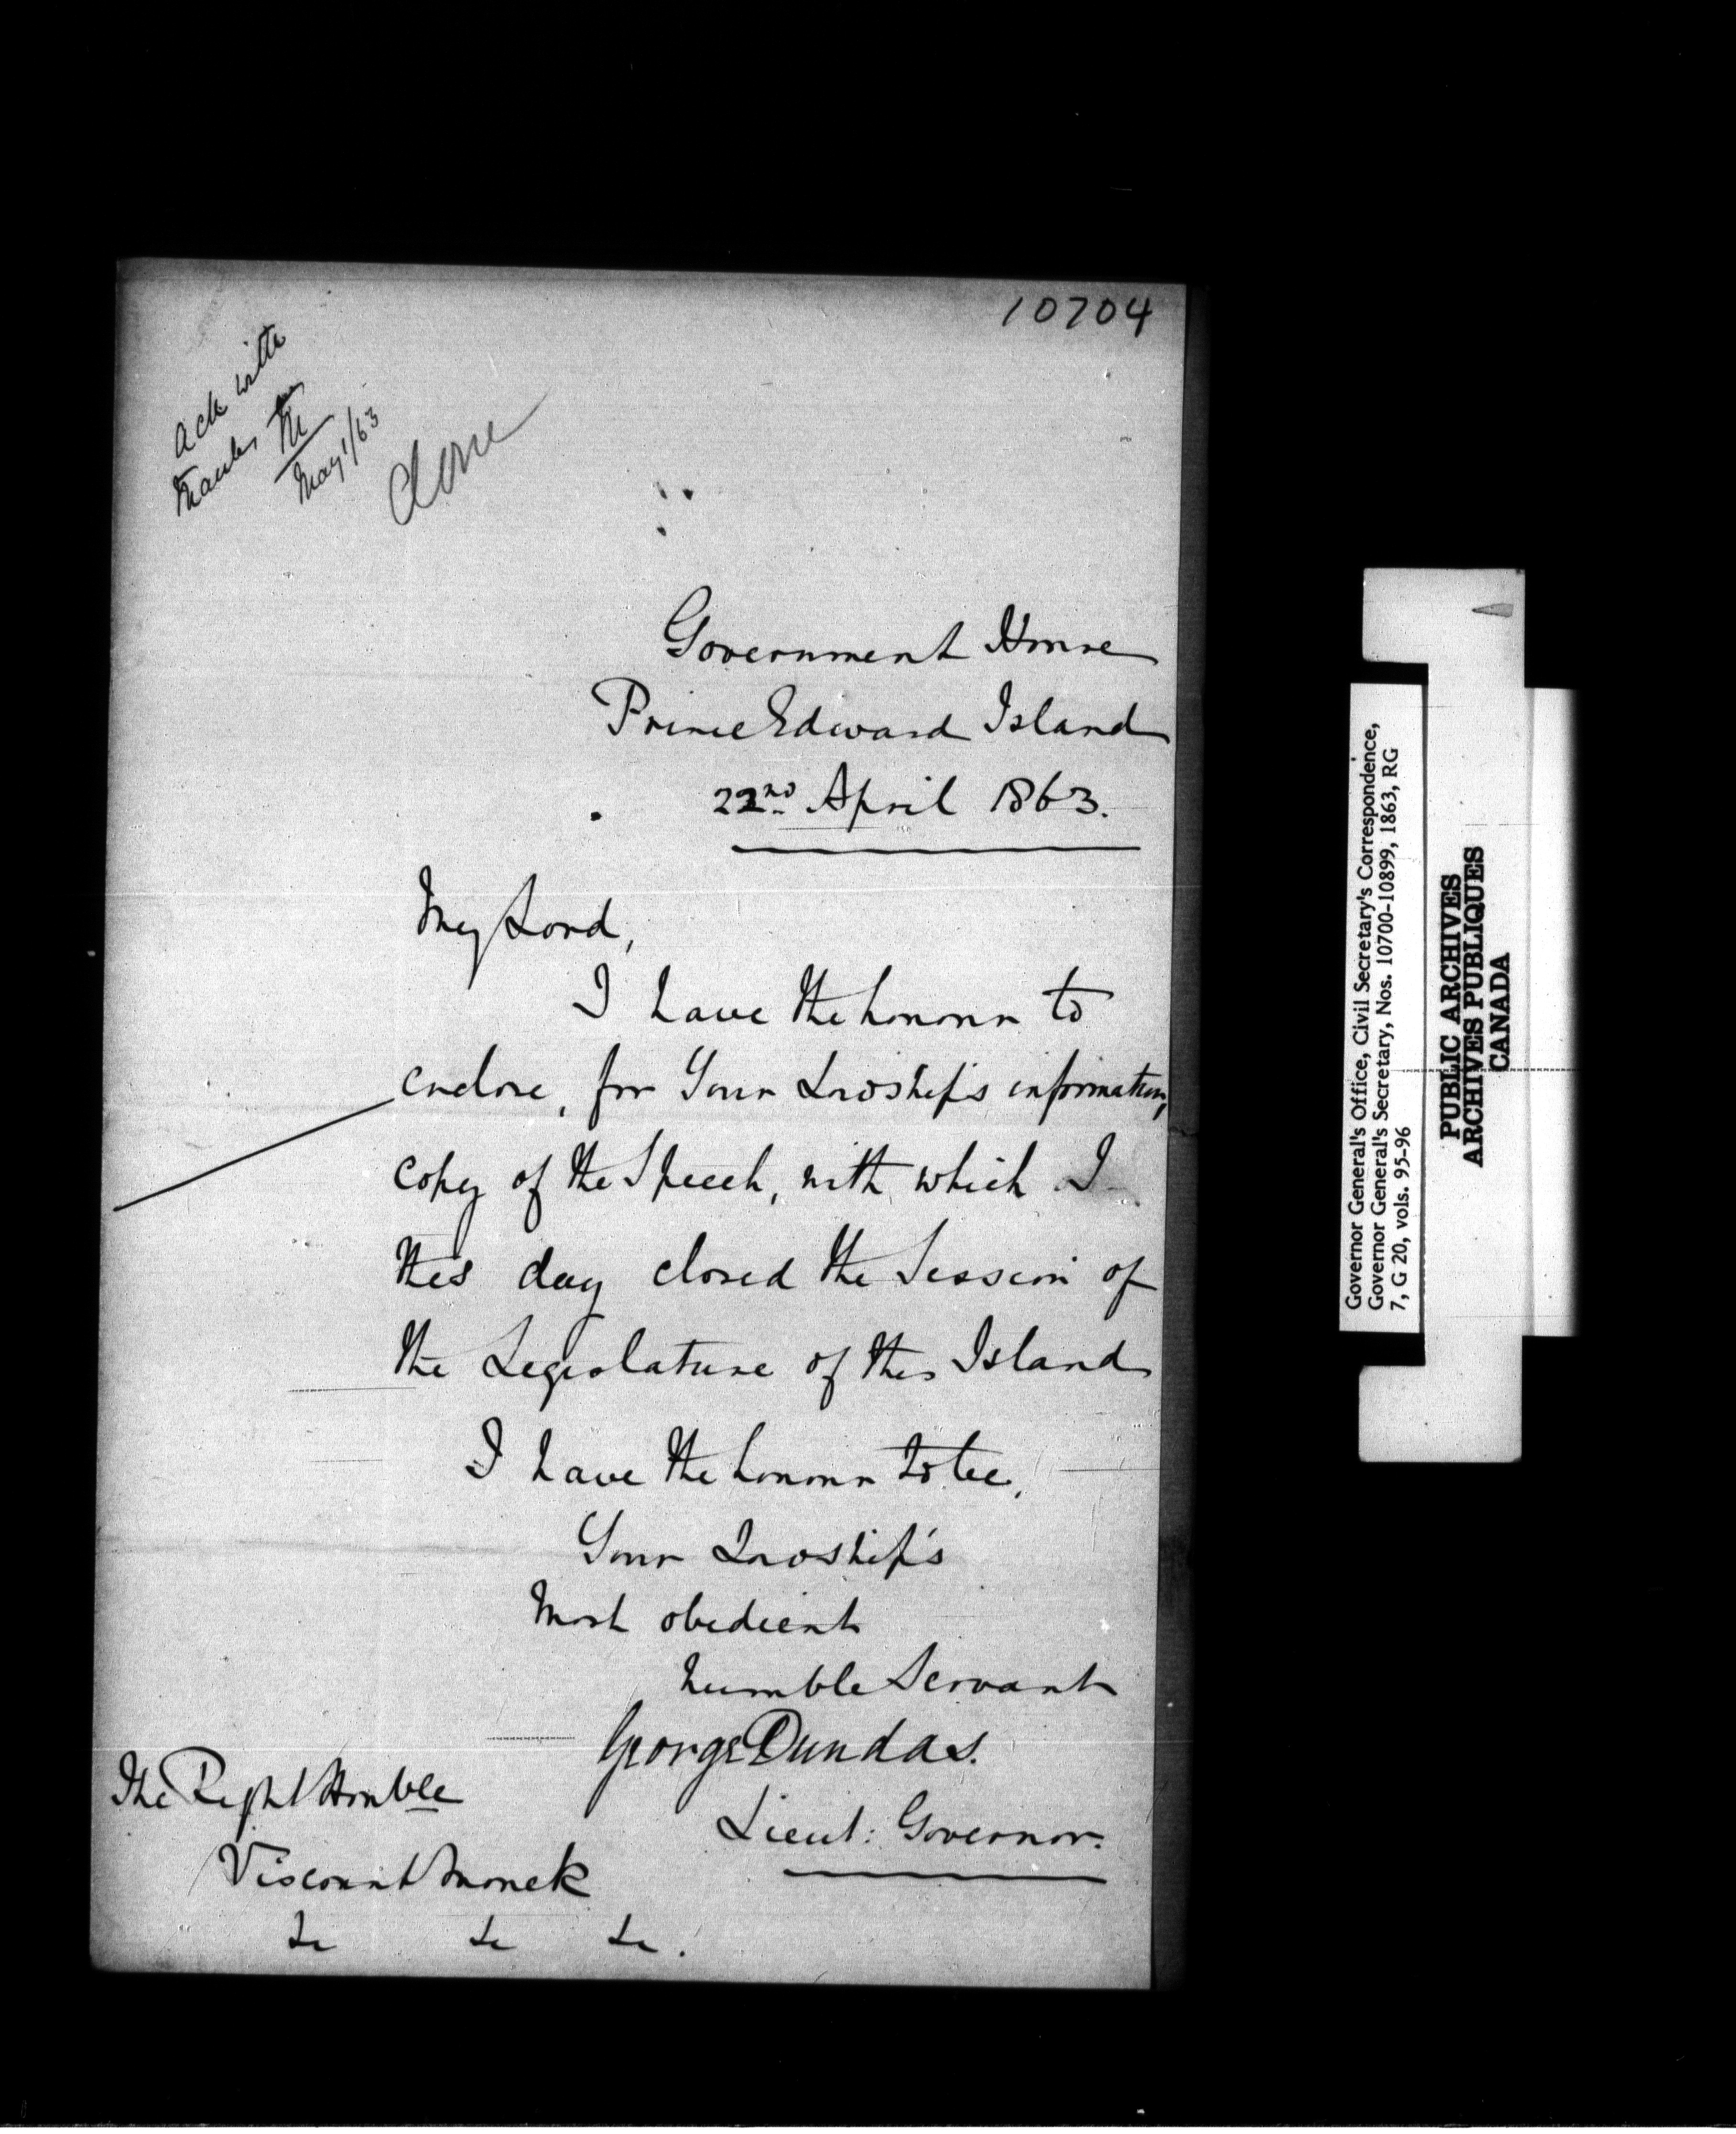 10704
Ack with
thanks
M
May 1/63
done
Government House
Prince Edward Island
22nd April 1863.
My Lord,
I have the honour to
enclose, for Your Lordship's information,
copy of the Speech, with which I
this day closed the Session of
the Legislature of this Island
I have the honour to be,
Your Lordship's
Most obedient
humble Servant
George Dundas.
Lieut: Governor.
The Right Honble
Viscount Monck
&c &c &c.
Governor General's Office, Civil Secretary's Correspondence,
Governor General's Secretary, Nos. 10700-10899, 1863, RG
7, G 20, vols. 95-96
PUBLIC ARCHIVES
ARCHIVES PUBLIQUES
CANADA